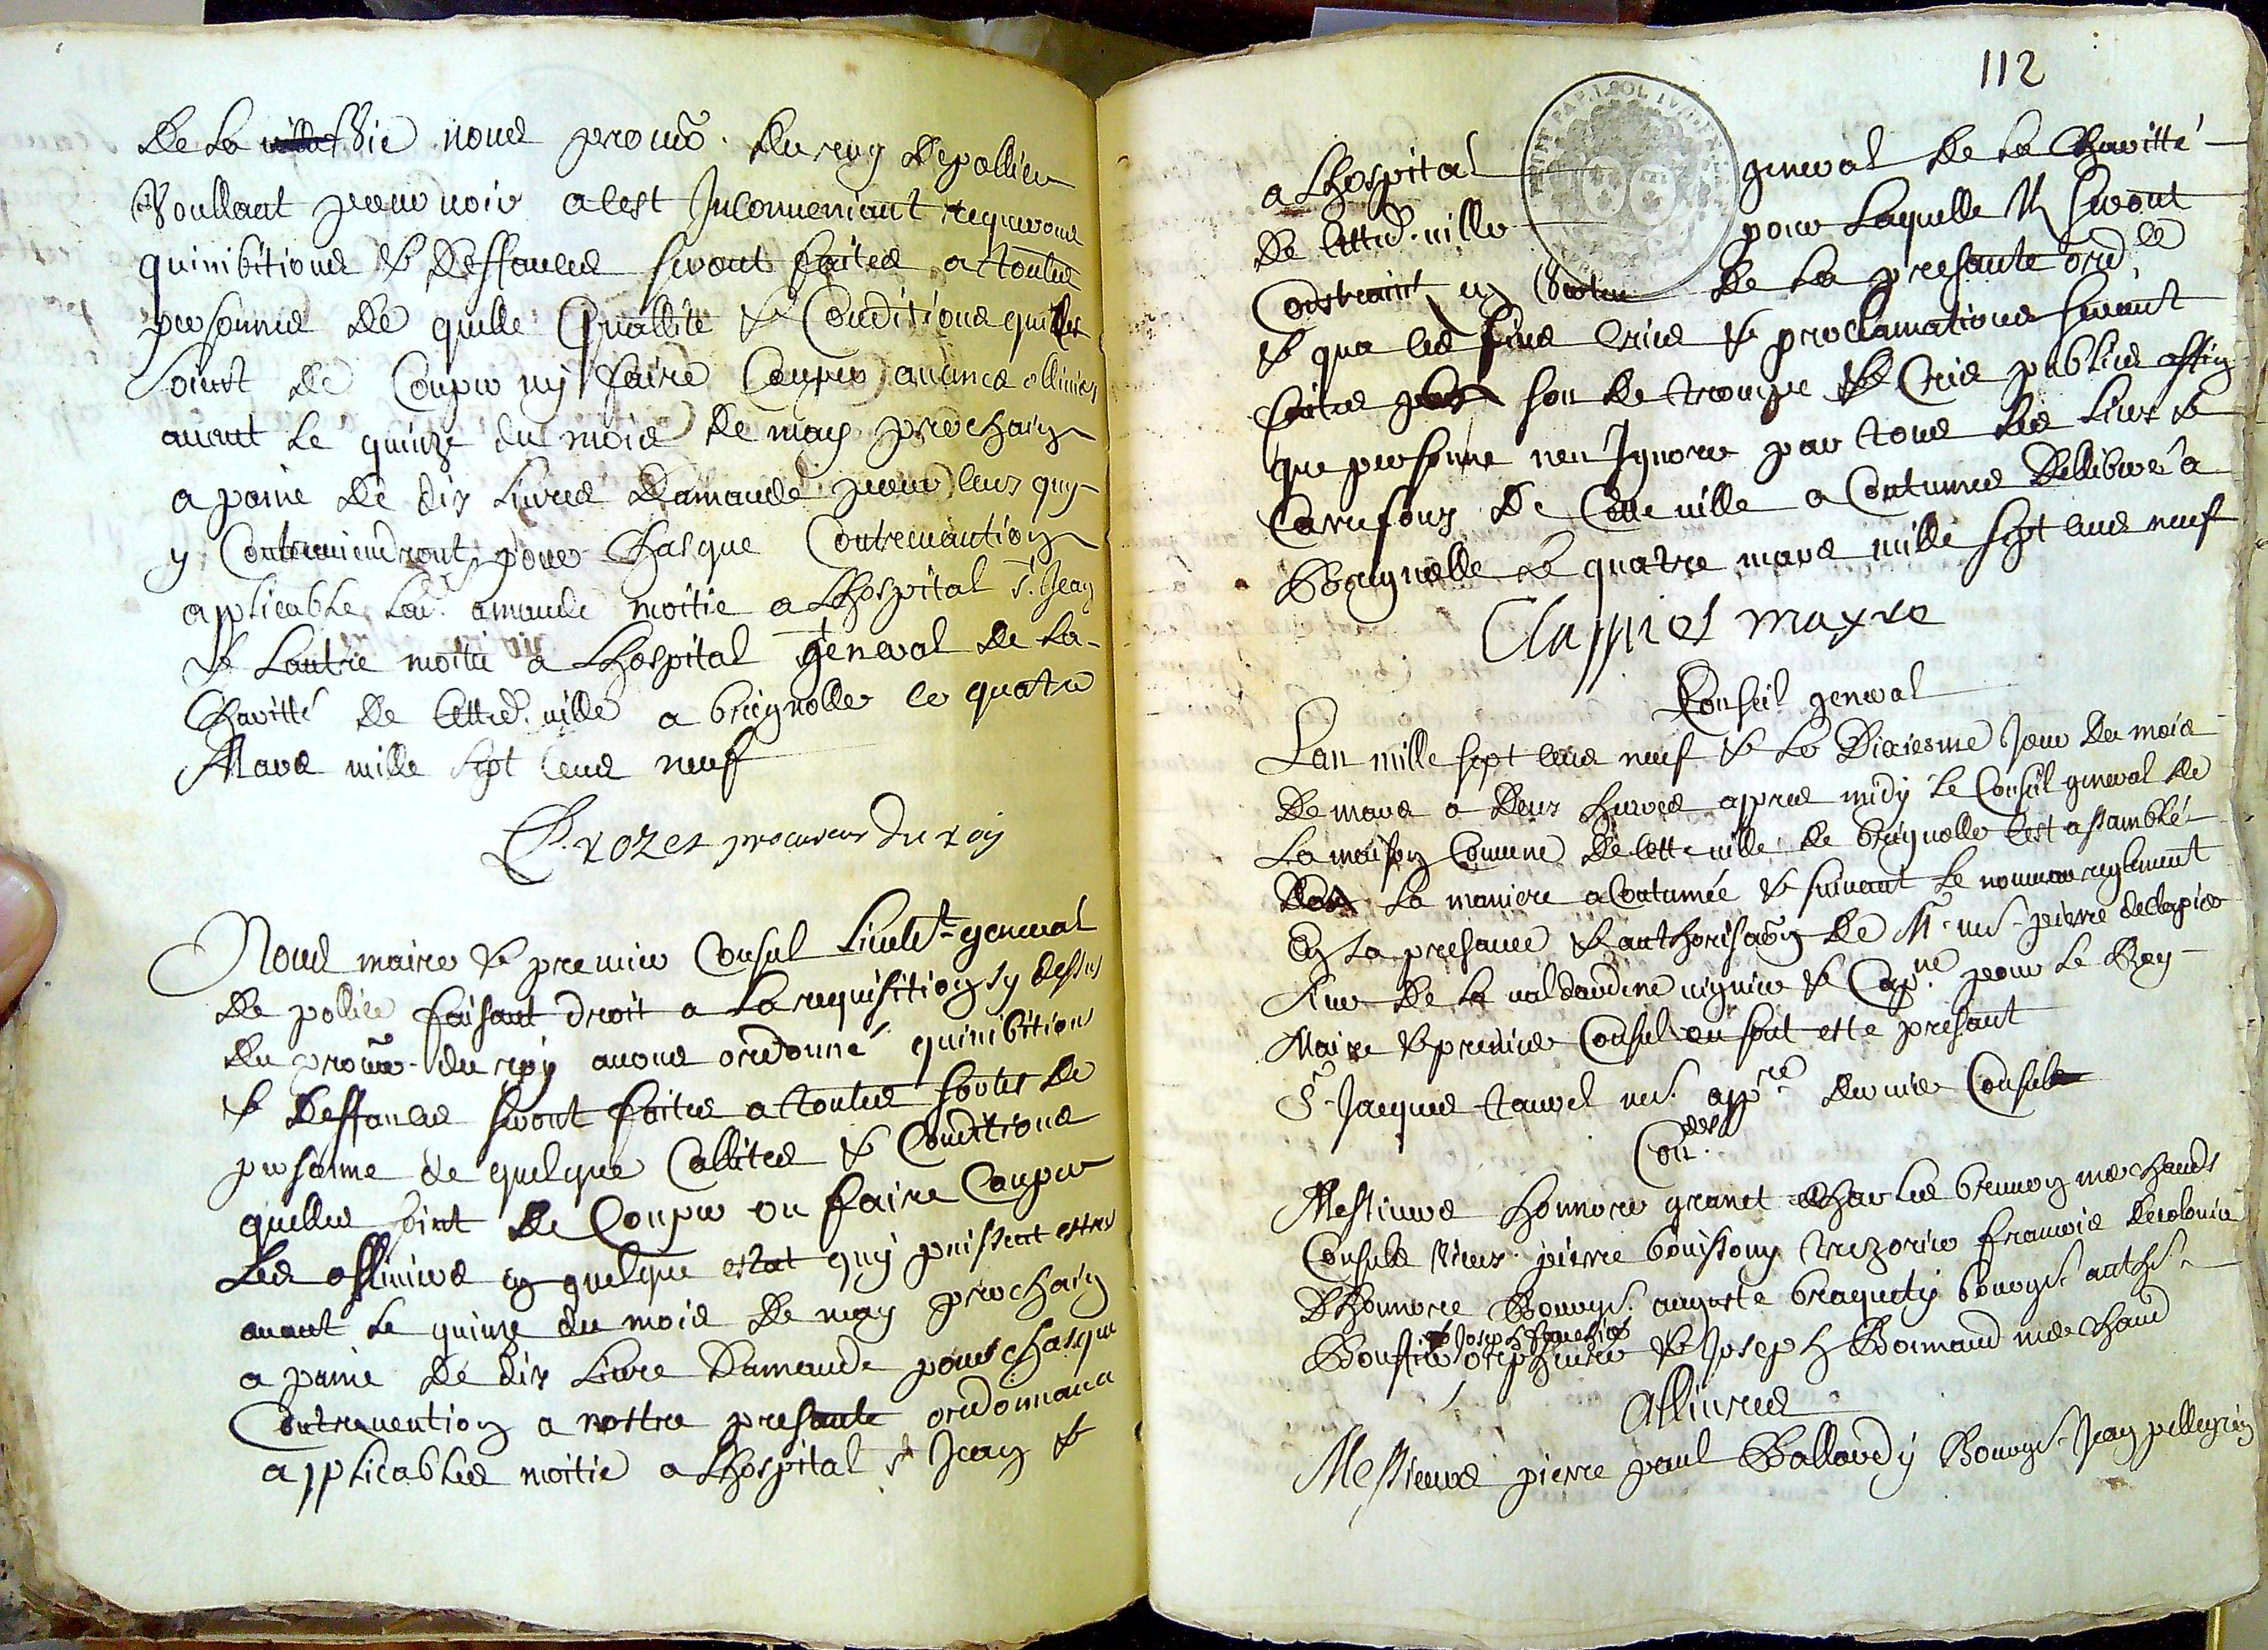 De la ville Vie nous procur. du roy de pollice
Voullant pourvoir a cest Inconveniant requerons
quinibitions & deffances seront faites a toutes
personnes de quelle quallité & Conditions quilles
soient de Couper ny faire Couper aucunes olliviers
avant le quinze du mois de may prochain
a paine de dix livres damande pour ceux quy
y Contreviendront pour chasque Contrevantion
applicable lad. amande moitie a Lhospital St. Jean
& Lautre moitié a Lhospital general de la
Charitté de cette d. ville a brignolle ce quatre
Mars mille sept cens neuf
procureur du roy
Nous maire & premier Consul Lieutt. general
de pollice faisant droit a la requisition sy dessus
du procur. du roy avons ordonné quinibitions
& deffances seront faites a toutes sortes de
personne de quelque Callites & Conditions
quelles soint de Couper ou faire Couper
Les olliviers en quelque estat quy puissent estre
avant le quinze du mois de may prochain
a paine de dix Livre damande pour chasque
Contrevention a nostre presante ordonnance
applicables moitie a Lhospital st Jean &
112
a Lhospital general de la Charitté
de cette d. ville pour laquelle Ils seront
Constraint en Vertu de la presante ordce
& qua ces fins cries & proclamations seront
faites a son de trompe & Cris publics affin
que personne nen Ignore par tous les lieux &
Carrefours de Cette ville a Coutumes Dellibere a
Brignolle le quatre mars mille sept cens neuf
Clappies mayre
Conseil general
Lan mille sept cens neuf & le Dixiesme Jour du mois
de mars a deux heures appres midy le Conseil general de
La maison Comune de cette ville de brignolle sest assamblé
la maniere a Coutumée & suivant le nouveau reglement
En la presance & authorisaon de Mr. me. pierre declapies
sieur de la valdardene viguier & Capne. pour le Roy
Maire & premier Consul ou sont este presant
Sr. Jacques tanrel me. appre dernier Consul
Condes
Messieurs honnore granet charles brunon marchands
Consuls vieux pierre bouissony trezorier francois decolonia
Dhonnore Bourgs. auguste braquety bourgs. anths.
Joseph
Bouffier orephevre & Joseph Bormand marchand
Allivres
Messieurs pierre paul Ballardy Bourgs. Jean pellegrin